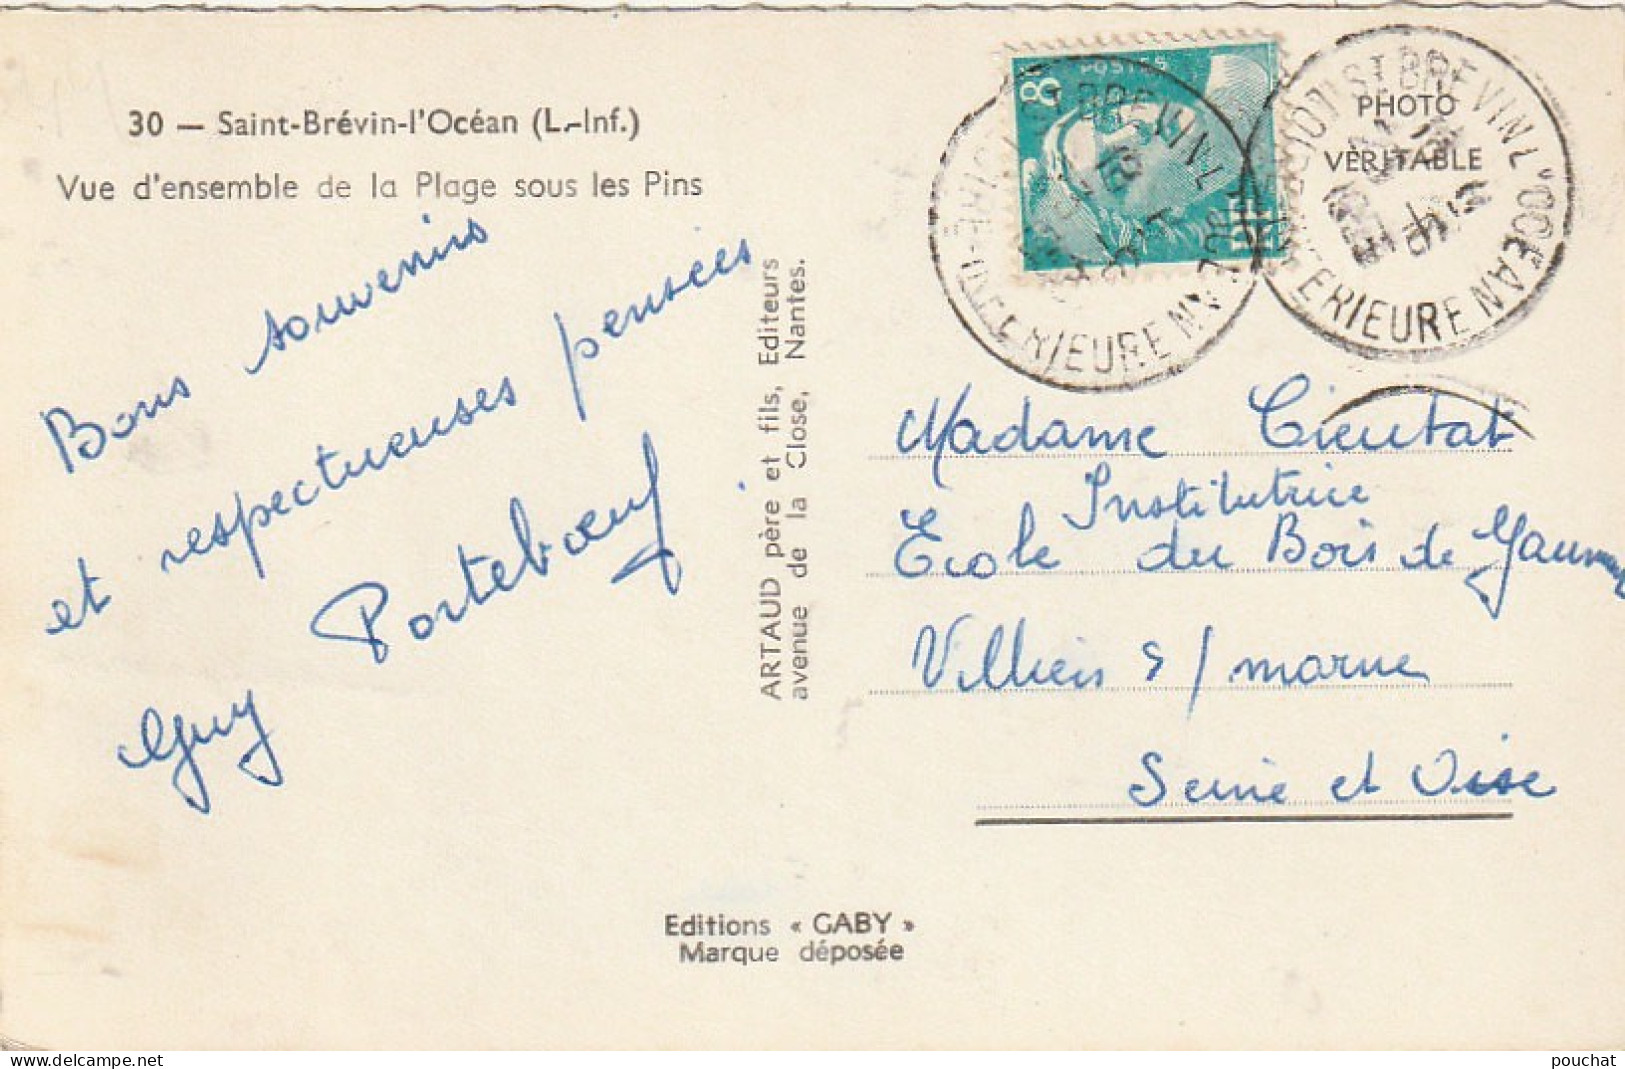 30 — Saint-Brévin-l'Océan (L.-Inf.)
Vue d'ensemble de la Plage sous les Pins
Bons souvenirs
et respectueuses pensées
Portebœuf
Guy
ARTAUD père et fils, Editeurs
avenue de la Close, Nantes.
8F
POSTES
ST BREVIN L'OCEAN
INFERIEURE
ST BREVIN L'OCEAN
INFERIEURE
PHOTO
VÉRITABLE
Madame Cieutat
Institutrice
Ecole du Bois de
Villiers s/ marne
Seine et Oise
Editions « GABY »
Marque déposée
pouchat